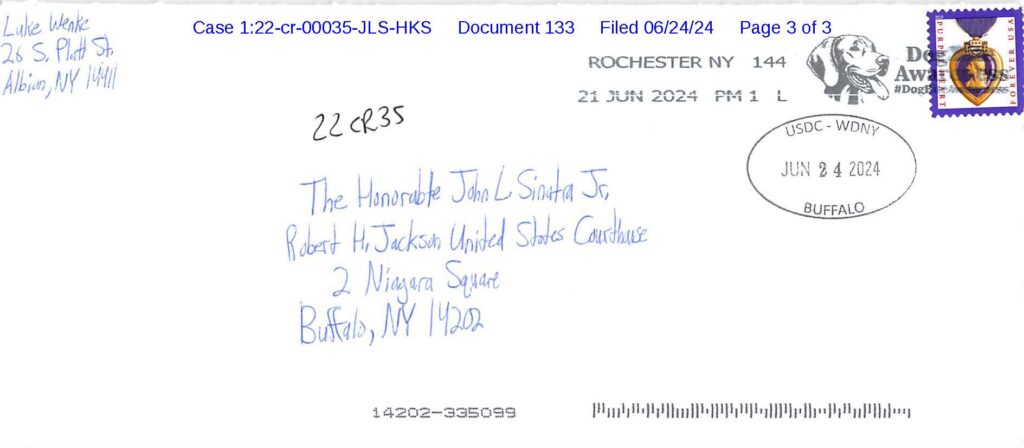 Case 1:22-cr-00035-JLS-HKS Document 133 Filed 06/24/24 Page 3 of 3
Luke Wenke
26 S. Platt St.
Albion, NY 14411
ROCHESTER NY 144
21 JUN 2024 PM 1 L
Dog
Awareness
PURPLE HEART
FOREVER USA
22CR35
USDC - WDNY
JUN 24 2024
BUFFALO
The Honorable John L Sinatra Jr.
Robert H. Jackson United States Courthouse
2 Niagara Square
Buffalo, NY 14202
14202-335099